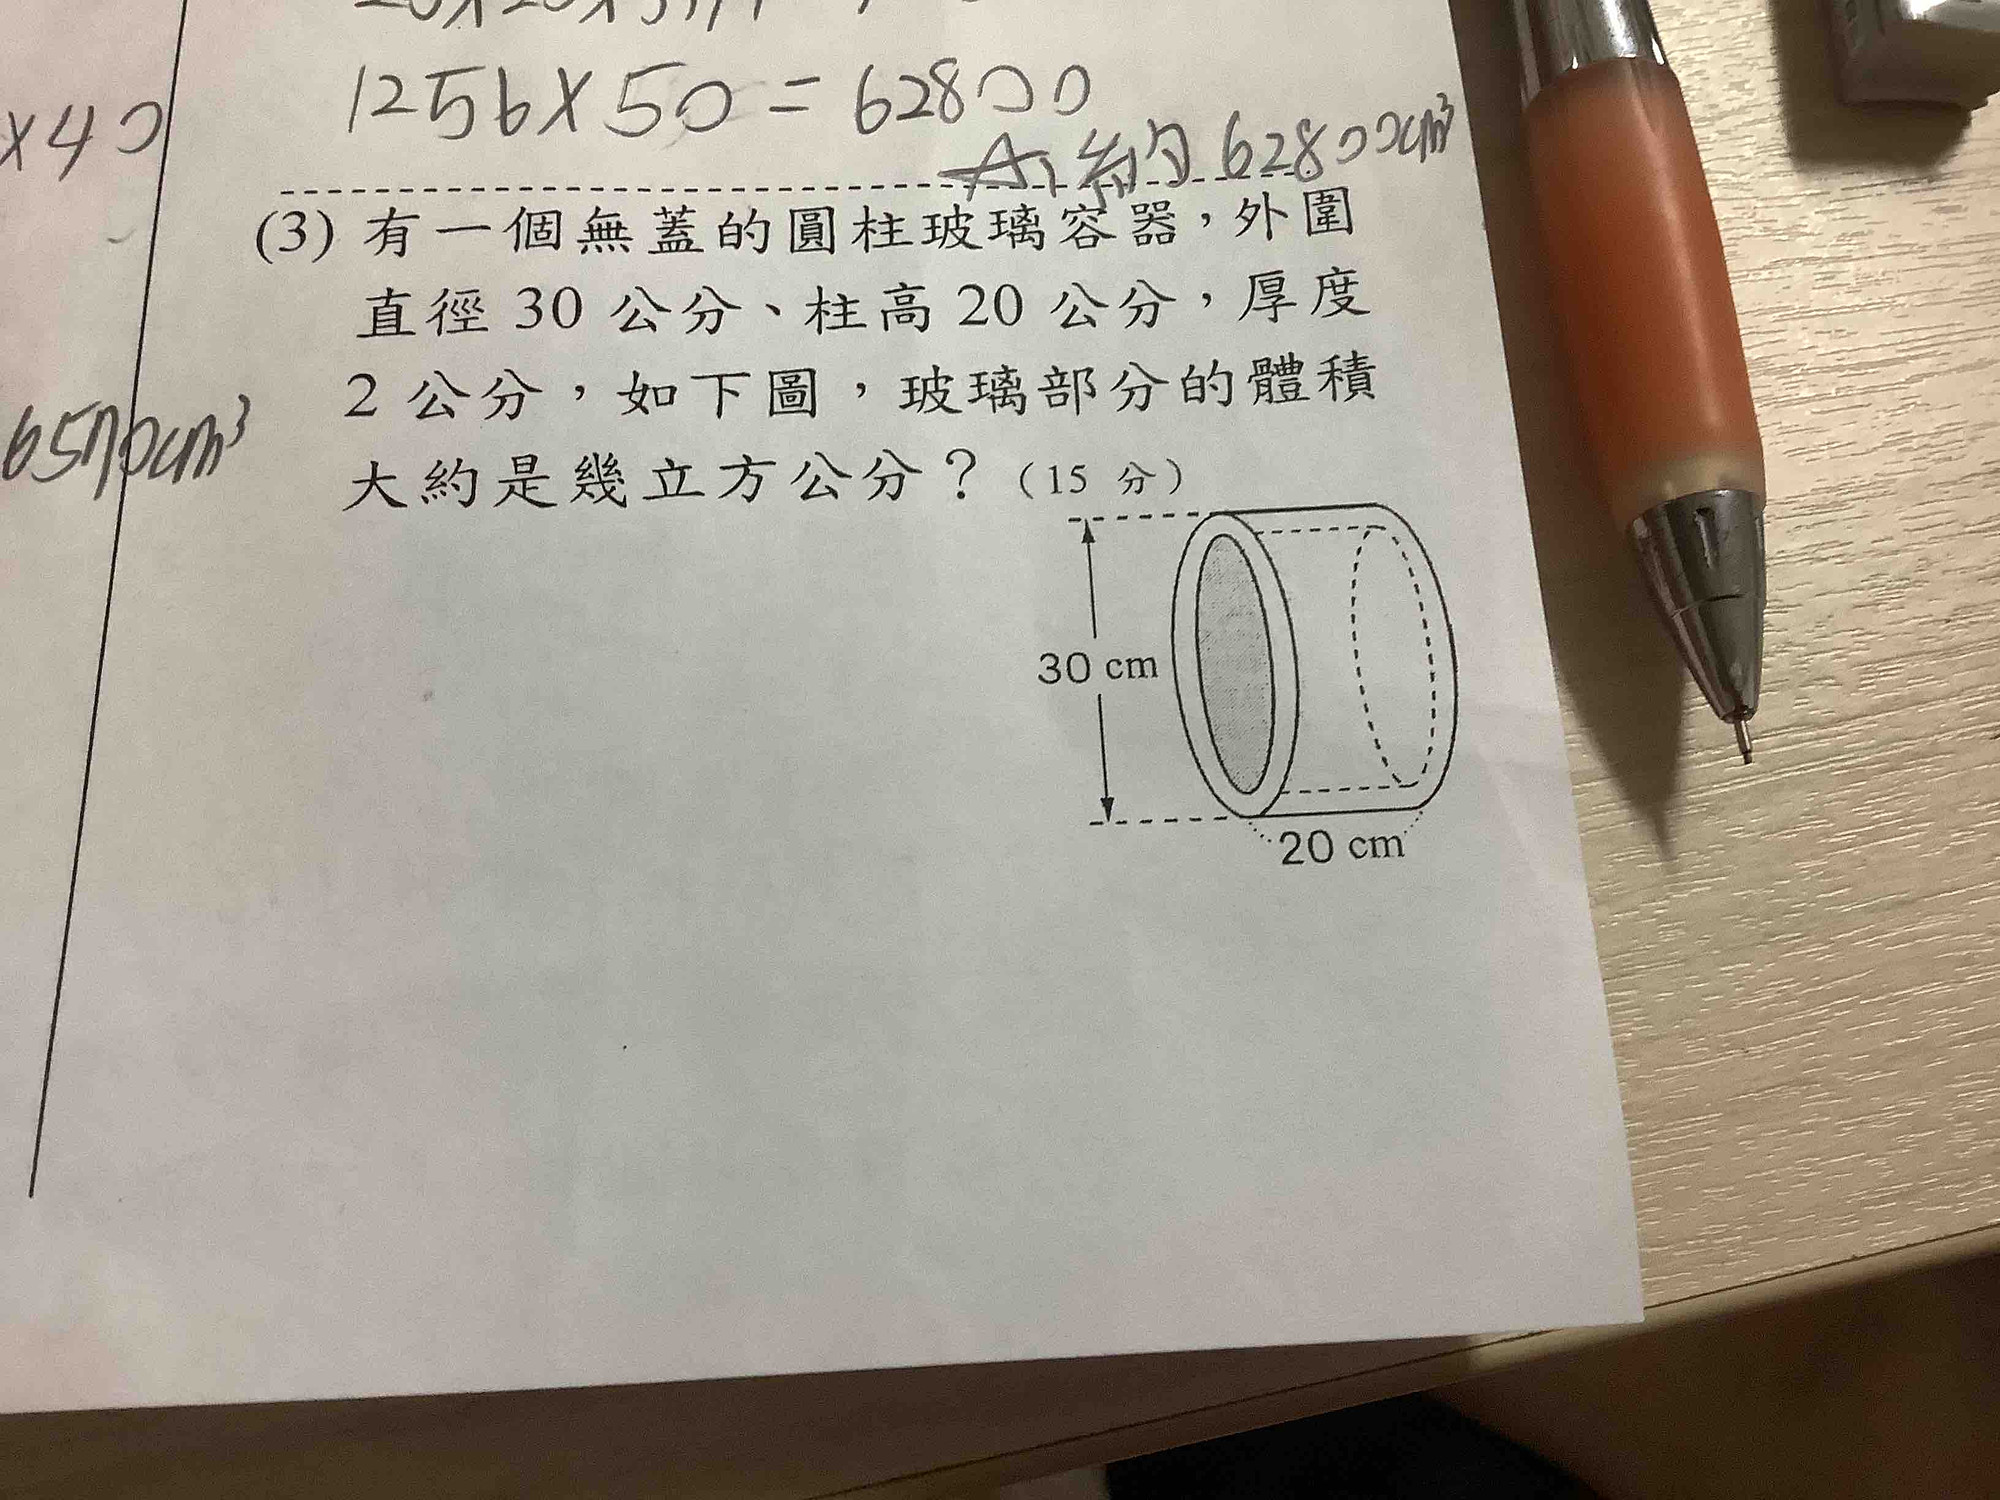 1256×50=62800
A:約62800cm³
×40
(3) 有一個無蓋的圓柱玻璃容器，外圍
直徑 30 公分、柱高 20 公分，厚度
2 公分，如下圖，玻璃部分的體積
大約是幾立方公分？（15 分）
cm³
30 cm
20 cm